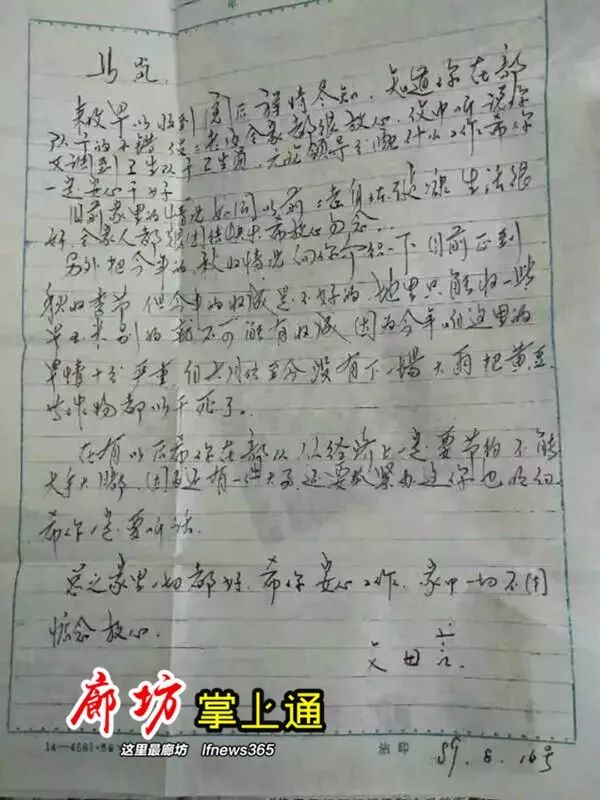 来收早以收到阅后详情尽知，知道你在部
队干的不错，全家都很放心，信中听说你
又调到卫生队干卫生员，无论领导分配什么工作希你
一定要安心干好
目前家里的情况如同以前，身体健康生活很
好，全家人都很团结快乐希放心勿念
另外把今年的秋收情况向你介绍一下目前正到
秋收季节但今年的收成是不好的地里只能收一些
早玉米别的就不可能有收成因为今年咱这里的
旱情十分严重，至今没有下一场大雨把黄豆
等作物都以干死了。
在有以后希你在部队以经济上一定要节约不能
大手大脚，因为还有一件大事，还要抓紧办这你也明白
希你一定要听话.
总之家里一切都好，希你安心工作，家中一切不用
惦念放心.
父母
言
廊坊掌上通
这里最廊坊 lfnews365
印
89.8.16号